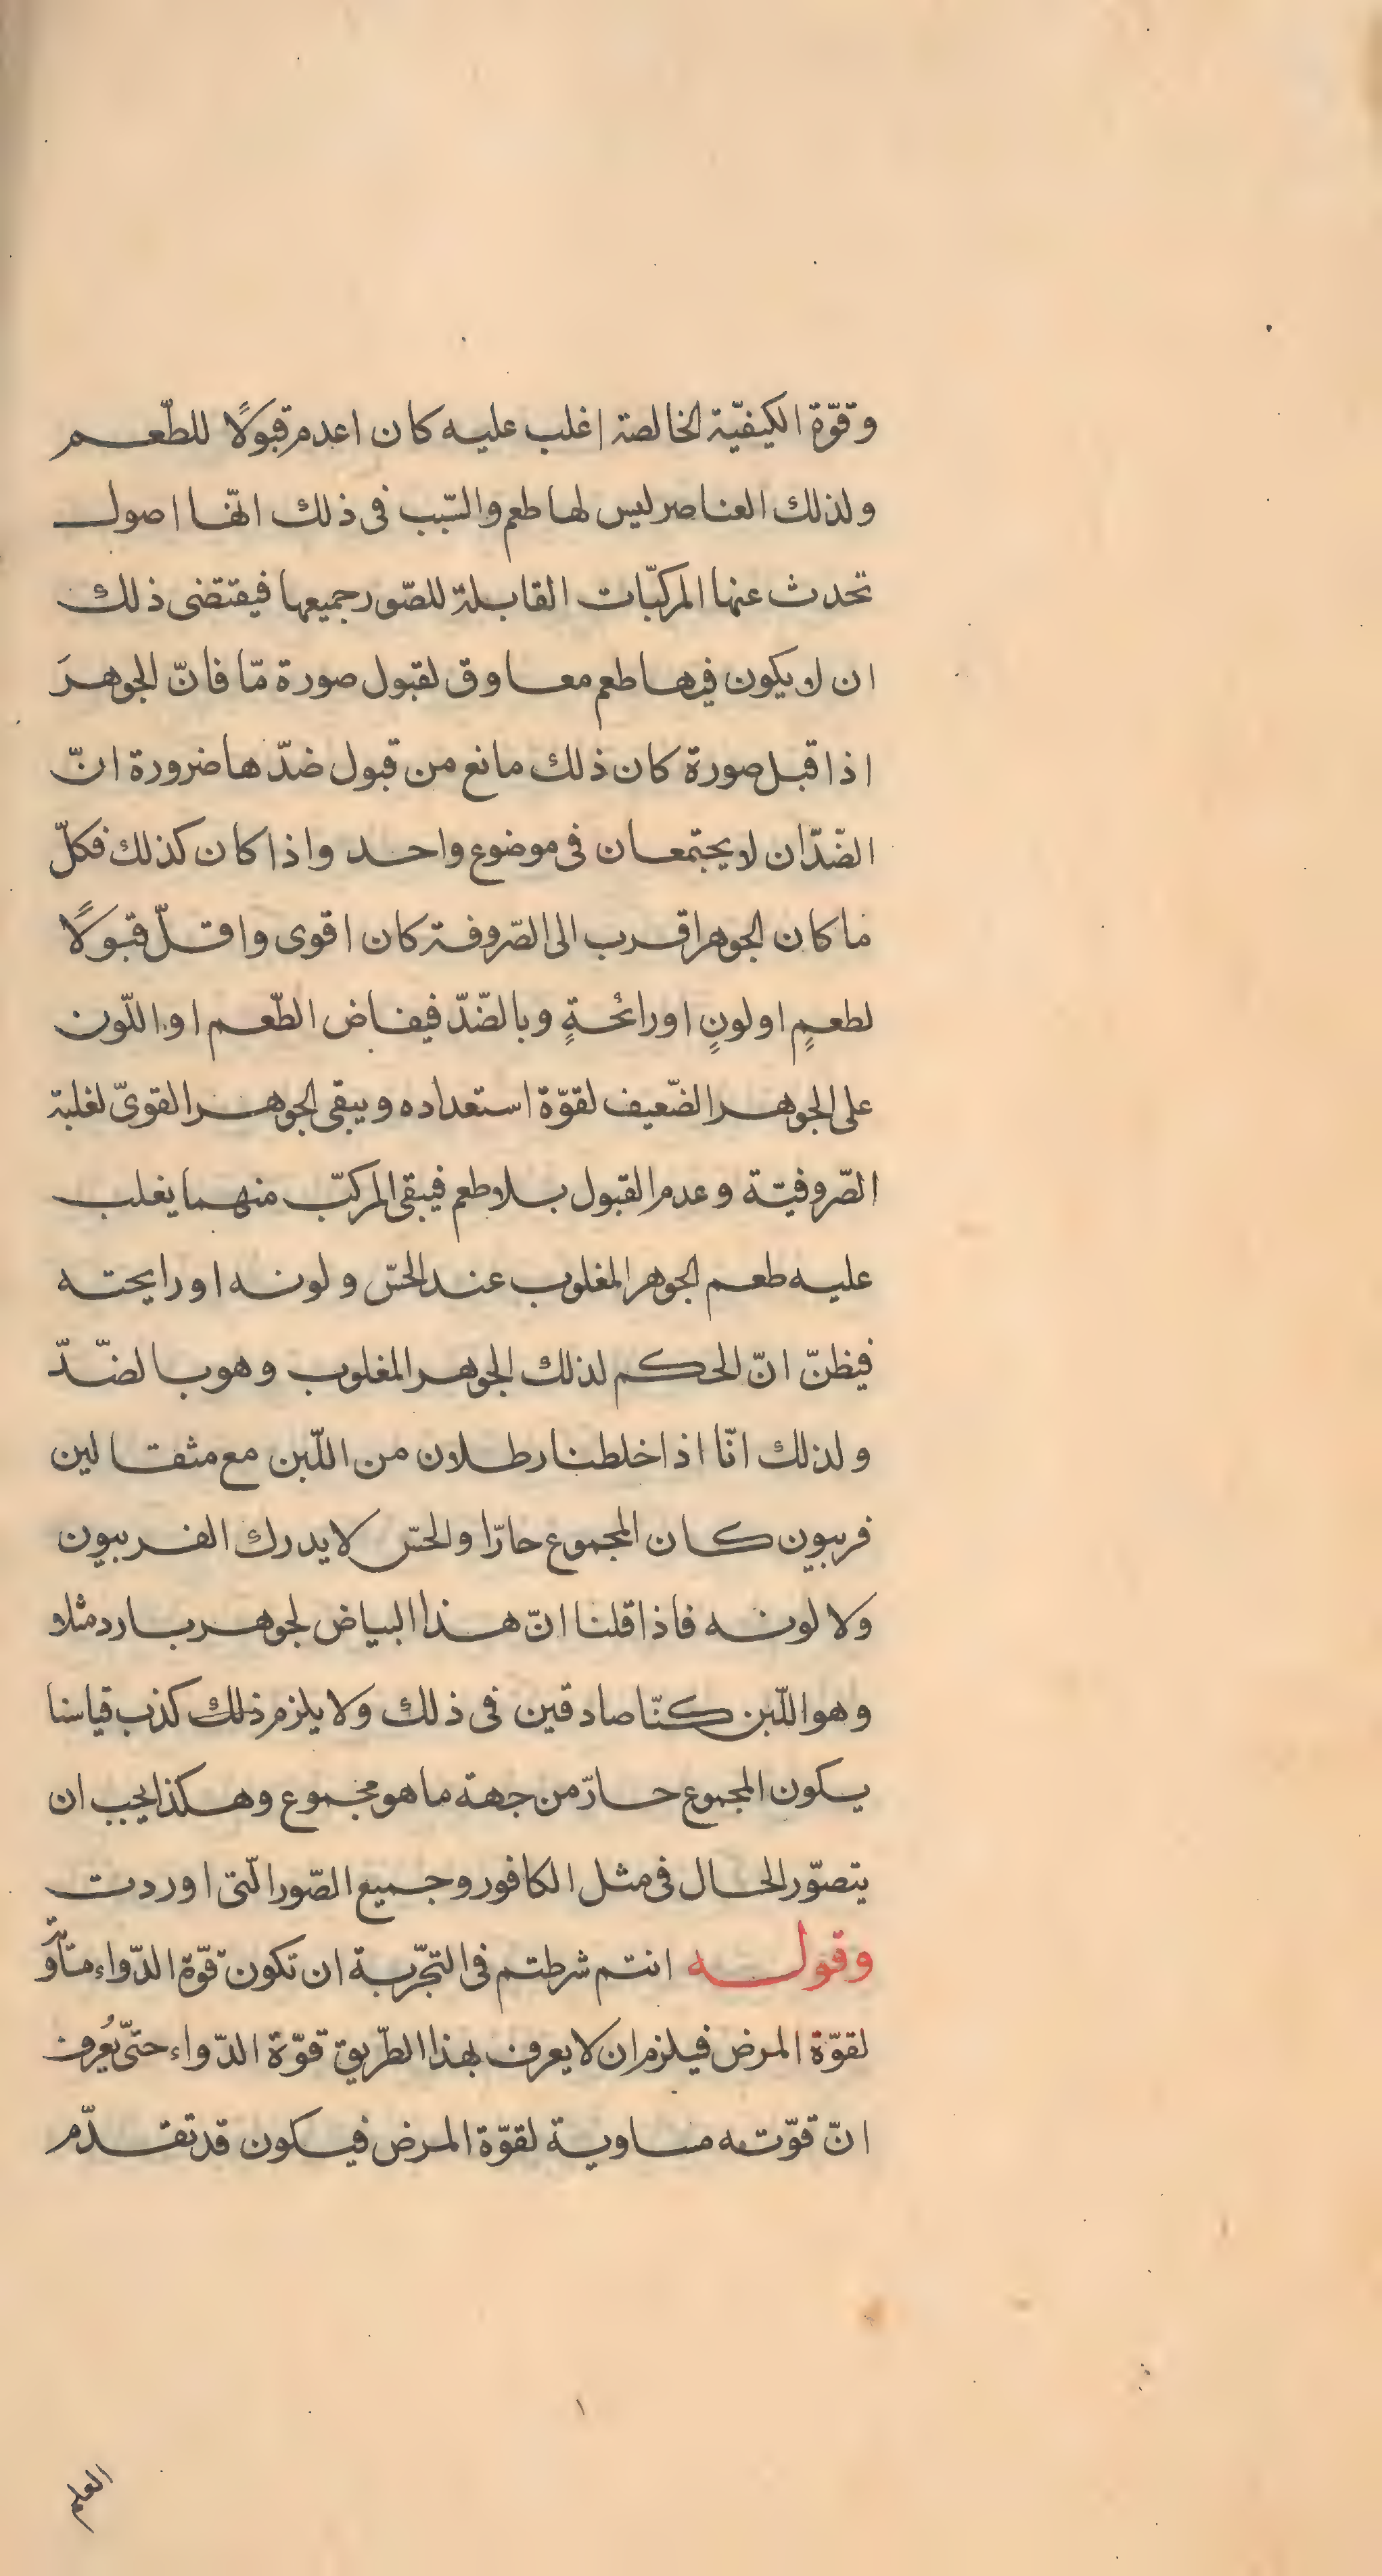 وقوّة الكيفيّة الخالصة اغلب عليه كان اعدم قبولًا للطّعم
ولذلك العناصر ليس لها طعم والسّبب فى ذلك انّها اصول
تحدث عنها المركبّات القابلة للصّور جميعها فيقتضى ذلك
ان لا يكون فيها طعم معاوق لقبول صورة مّا فانّ الجوهرَ
اذا قبل صورة كان ذلك مانع من قبول ضدّها ضرورة انّ
الضّدّان لا يجتمعان فى موضوع واحد واذا كان كذلك فكلّ
ما كان الجوهر اقرب الى الصّروفة كان اقوى واقلّ قبولًا
لطعمٍ او لونٍ او رائحةٍ وبالضّدّ فيفاض الطّعم او اللّون
على الجوهر الضّعيف لقوّة استعداده ويبقى الجوهر القوىّ لغلبة
الصّروفيّة وعدم القبول بلا طعم فيبقى المركبّ منهما يغلب
عليه طعم الجوهر المغلوب عند الحسّ ولونه او رايحته
فيظنّ انّ الحكم لذلك الجوهر المغلوب وهو بالضّدّ
ولذلك انّا اذا خلطنا رطلان من اللّبن مع مثقالين
فربيون كان المجموع حارّا والحسّ لا يدرك الفربيون
ولا لونه فاذا قلنا انّ هذا البياض لجوهر بارد مثلا
وهو اللّبن كنّا صادقين فى ذلك ولا يلزم ذلك كذب قياسنا
يكون المجموع حارّ من جهة ما هو مجموع وهكذا يجب ان
يتصوّر الحال فى مثل الكافور وجميع الصّور الّتى اوردت
وقوله انتم شرطتم فى التجّربة ان تكون قوّة الدّواء
لقوّة المرض فيلزم ان لا يعرف بهذا الطّريق قوّة الدّواء حتّى يُعرف
انّ قوّته مساوية لقوّة المرض فيكون قد تقدّم
١
العلم